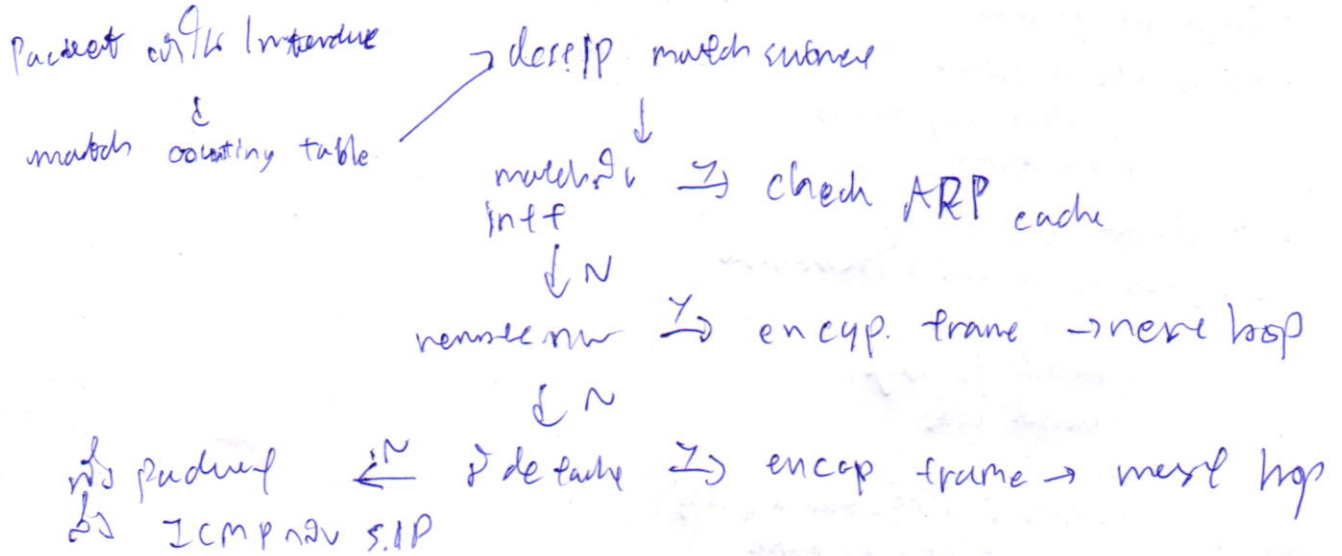 Packet เข้า Interface
↓
match routing table → dest IP match subnet
↓
match กับ intf Y→ check ARP cache
↓ N
remote nw Y→ encap. frame → next hop
↓ N
มี default Y→ encap frame → next hop
N← ทิ้ง packet
ส่ง ICMP กลับ S.IP